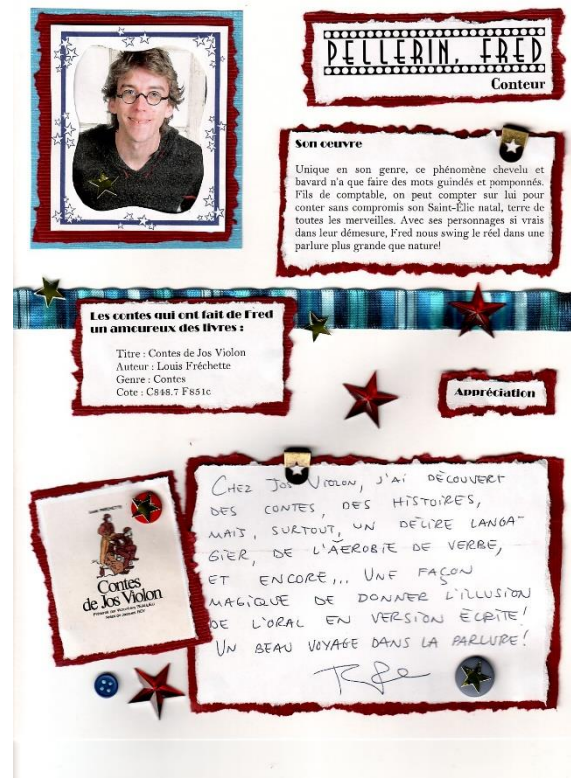 PELLERIN, FRED
Conteur
Son oeuvre
Unique en son genre, ce phénomène chevelu et
bavard n'a que faire des mots guindés et pomponnés.
Fils de comptable, on peut compter sur lui pour
conter sans compromis son Saint-Élie natal, terre de
toutes les merveilles. Avec ses personnages si vrais
dans leur démesure, Fred nous swing le réel dans une
parlure plus grande que nature!
Les contes qui ont fait de Fred
un amoureux des livres :
Titre : Contes de Jos Violon
Auteur : Louis Fréchette
Genre : Contes
Cote : C848.7 F851c
Appréciation
CHEZ JOS VIOLON, J'AI DÉCOUVERT
DES CONTES, DES HISTOIRES,
MAIS, SURTOUT, UN DÉLIRE LANGA-
GIER, DE L'AÉROBIE DE VERBE,
ET ENCORE... UNE FAÇON
MAGIQUE DE DONNER L'ILLUSION
DE L'ORAL EN VERSION ÉCRITE!
UN BEAU VOYAGE DANS LA PARLURE!
LOUIS FRÉCHETTE
Contes
de Jos Violon